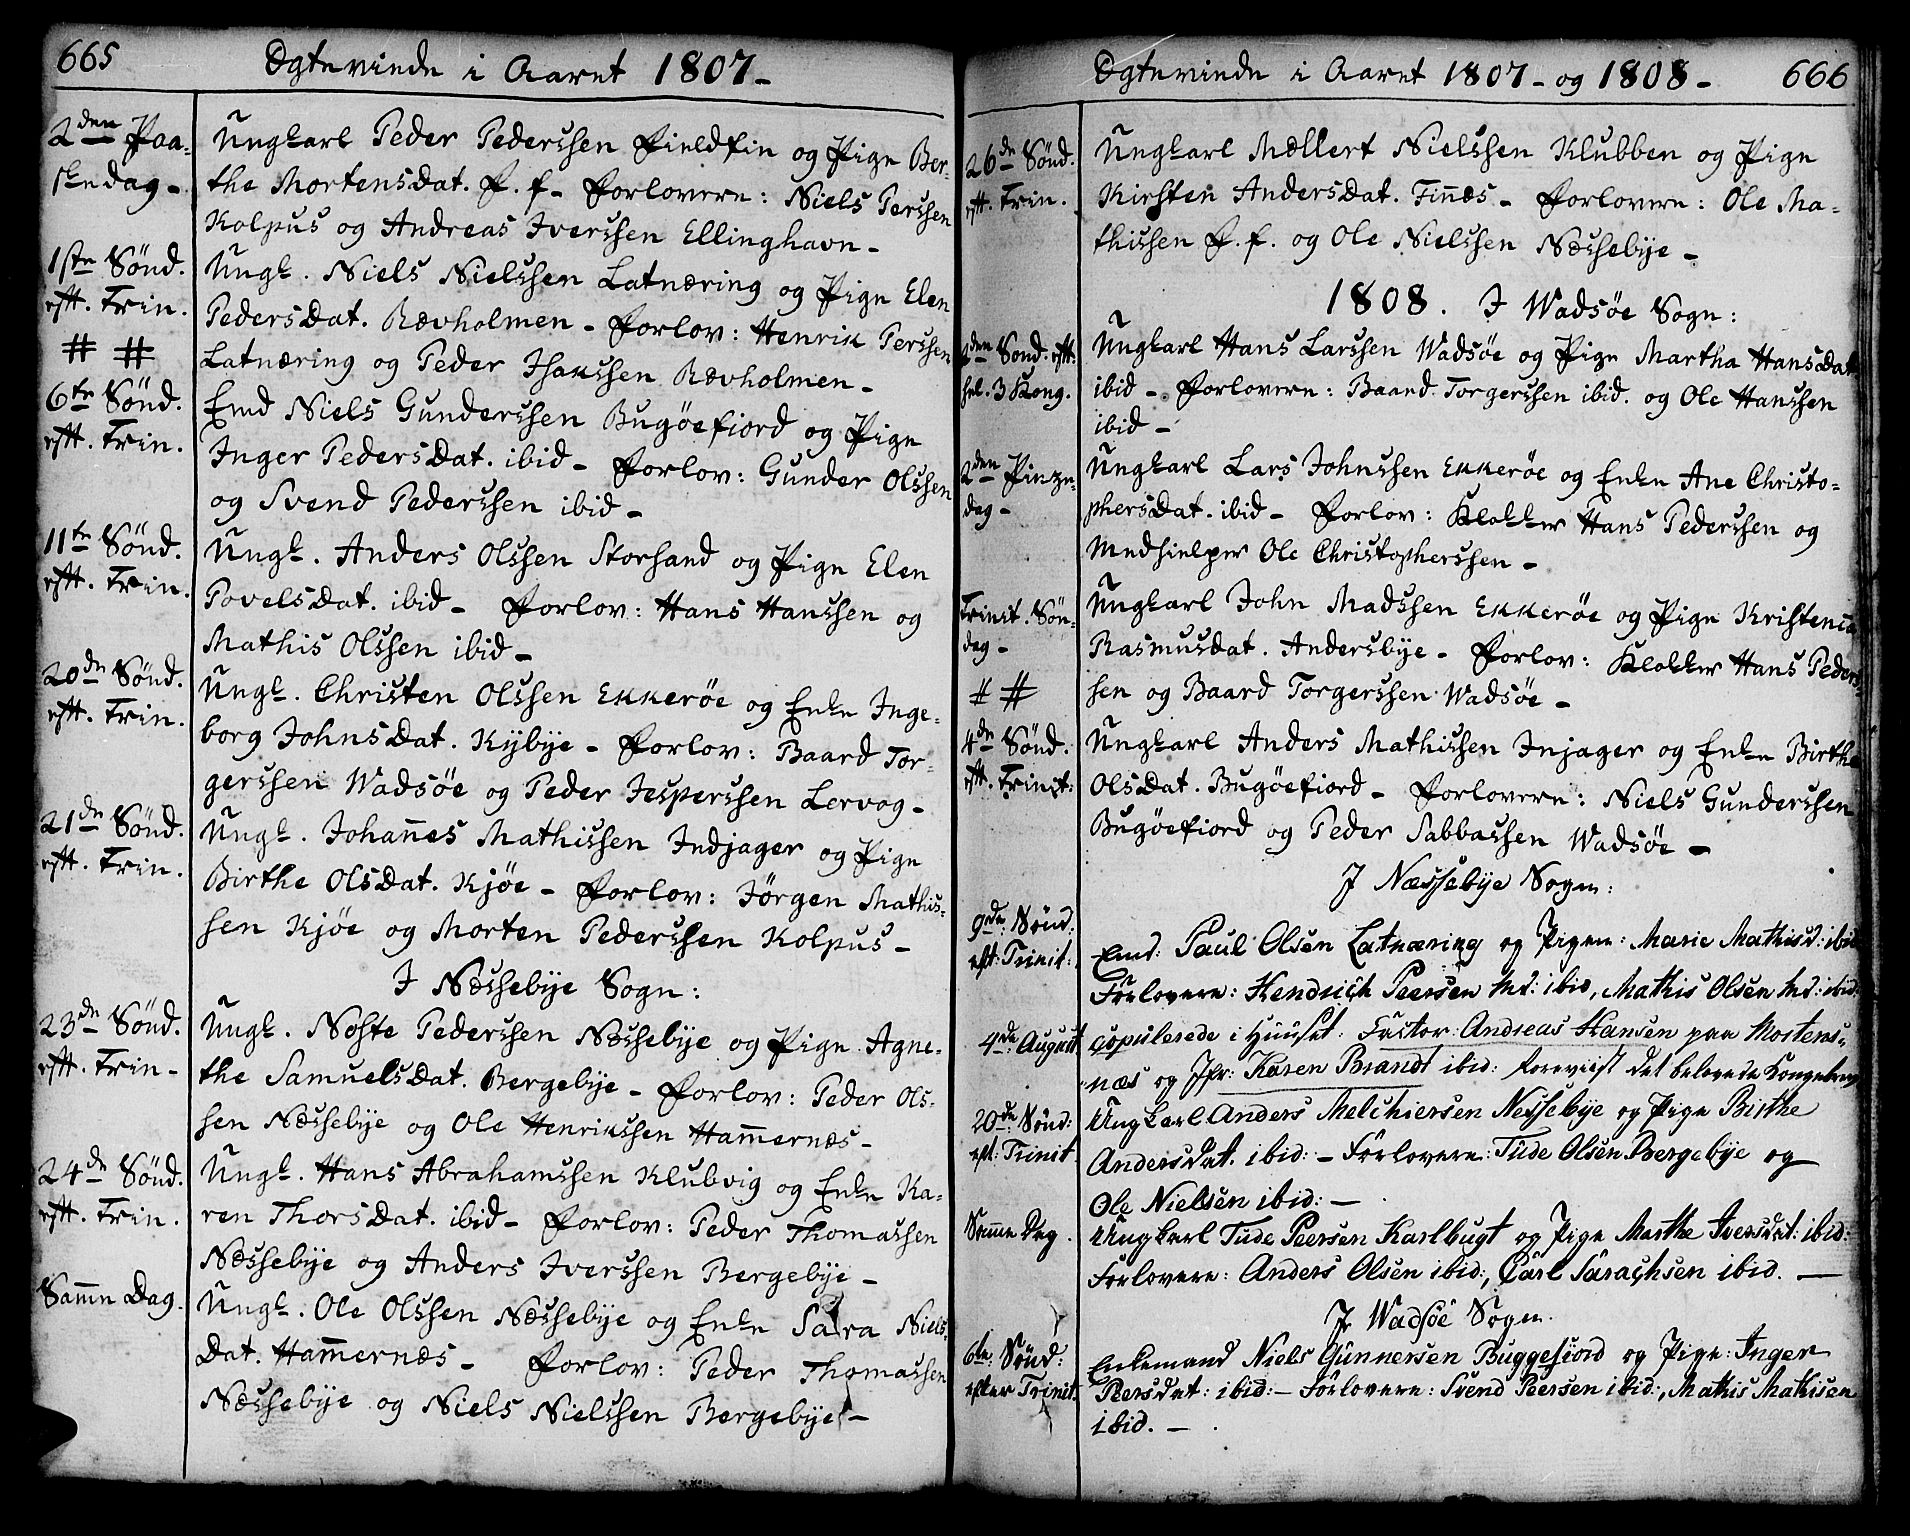 665 Ægteviede i Aaret 1807-
2den Paa-
skedag-
Ungkarl Peder Pederssen Fieldfin og Pige Ber-
the MortensDat. F. f- Forlovere: Niels Perssen
Kolpus og Andreas Iverssen Ellinghavn-
1ste Sønd.
eftt. Trin.
# #
Ungk. Niels Nielssen Latnæring og Pige Elen
PedersDat. Rævholmen- Forlov: Henrik Perssen
Latnæring og Peder Isakssen Rævholmen-
6te Sønd.
eftt. Trin.
Emd Niels Gunderssen Bugøefiord og Pige
Inger PedersDat. ibid- Forlov: Gunder Olssen
og Svend Pederssen ibid-
11te Sønd.
eftt. Trin.
Ungk. Anders Olssen Storsand og Pige Elen
PovelsDat. ibid- Forlov: Hans Hanssen og
Mathis Olssen ibid-
20de Sønd.
eftt. Trin.
Ungk. Christen Olssen Ekkerøe og Enke Inge-
borg JohnsDat. Kÿbÿe- Forlov: Baard Tor-
gerssen Wadsöe og Peder Jesperssen Lervog-
21de Sønd.
eftt. Trin.
Ungk. Johan̄es Mathissen Indjager og Pige
Birthe OlsDat. Kjøe- Forlov: Jörgen Mathis-
sen Kjøe og Morten Pederssen Kolpus-
I Næssebÿe Sogn:
23de Sønd.
eftt. Trin-
Ungk. Noste Pederssen Næssebÿe og Pige Agne-
the SamuelsDat. Bergebÿe- Forlov: Peder Ols-
sen Næssebÿe og Ole Henrikssen Ham̄ernæs-
24de Sønd.
eftt. Trin.
Ungk. Hans Abrahamssen Klubvig og Enke Ka-
ren ThorsDat. ibid- Forlov: Peder Thomassen
Næssebÿe og Anders Iverssen Bergebÿe-
Sam̄e Dag.
Ungk. Ole Olssen Næssebÿe og Enke Sara Niels-
Dat. Ham̄ernæs- Forlov: Peder Thomassen
Næssebÿe og Niels Nielssen Bergebÿe-
Ægteviede i Aaret 1807- og 1808- 666
26de Sønd.
eftt. Trin.
Ungkarl Mællert Nielssen Klubben og Pige
Kirsten AndersDat. Fin̄æs- Forlovere: Ole Ma-
thissen F. f. og Ole Nielssen Næssebÿe-
1808. I Wadsøe Sogn:
2den Sønd. eftt.
hel. 3 Kong.
Ungkarl Hans Larssen Wadsøe og Pige Martha HansDat
ibid- Forlovere: Baard Torgerssen ibid. og Ole Hanssen
ibid-
2den Pinze-
dag-
Ungkarl Lars Johnssen Ekkerøe og Enke Ane Christo-
phersDat. ibid- Forlov: Klokker Hans Pederssen og
Medhielper Ole Christopherssen-
Trinit. Søn-
dag-
# #
Ungkarl John Madssen Ekkerøe og Pige Kristenca
RasmusDat. Andersbÿe- Forlov: Klokker Hans Peders-
sen og Baard Torgerssen Wadsøe-
4de Sønd.
eftt. Trinit:
Ungkarl Anders Mathissen Injager og Enke Birthe
OlsDat. Bugøefiord- Forlovere: Niels Gunderssen
Bugøefiord og Peder Sabbassen Wadsøe-
I Næssebÿe Sogn:
9de: Sønd:
eft: Trinit:
Emd: Paul Olsen Latnæring og Pigen: Marie Mathisd: ibid
Forlovere: Hendrich Peersen Md: ibid, Mathis Olsen Md: ibid:
4de August
copulerede i Huuset: Factor: Andreas Hansen paa Mortens-
næs og Jfr: Karen Brandt ibid: foreviist det belovede Kongebrev
20de: Sønd:
eft: Trinit.
Ungkarl Anders Melchiersen Nessebÿe og Pige Birthe
Andersdat. ibid:- Forlovere: Tude Olsen Bergebÿe og
Ole Nielsen ibid:-
Sam̄e Dag.
Ungkarl Tude Peersen Karlbugt og Pige Marthe Iversdat: ibid:
Forlovere: Anders Olsen ibid:, Carl Sarachsen ibid. -
I Wadsöe Sogn.
6te: Sønd:
efter Trinit.
Enkemand Niels Gunnersen Buggefiord og Pige: Inger
Peersdat: ibid:- Forlovere: Svend Peersen ibid:, Mathis Mathisen
ibid.-